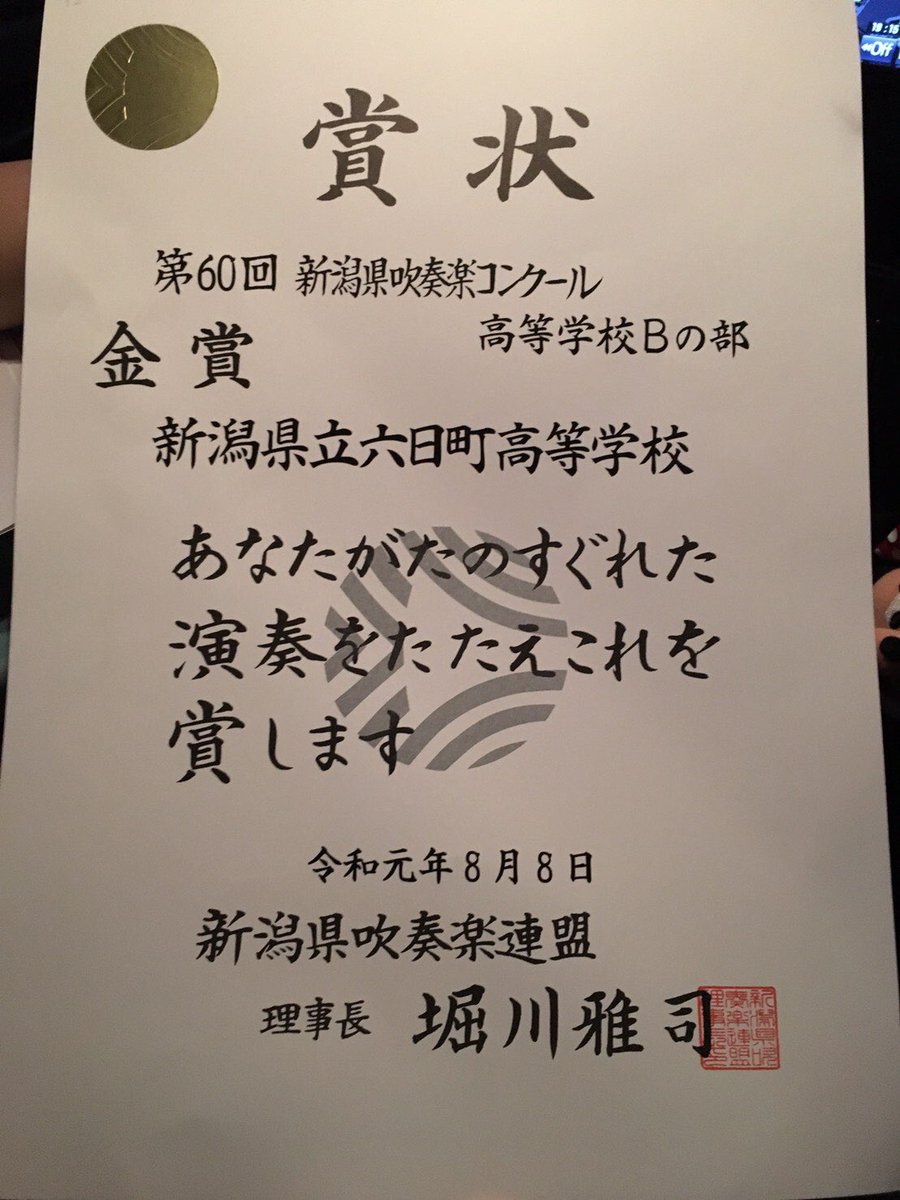 賞状
第60回 新潟県吹奏楽コンクール
高等学校Bの部
金賞
新潟県立六日町高等学校
あなたがたのすぐれた
演奏をたたえこれを
賞します
令和元年8月8日
新潟県吹奏楽連盟
理事長 堀川雅司
Off